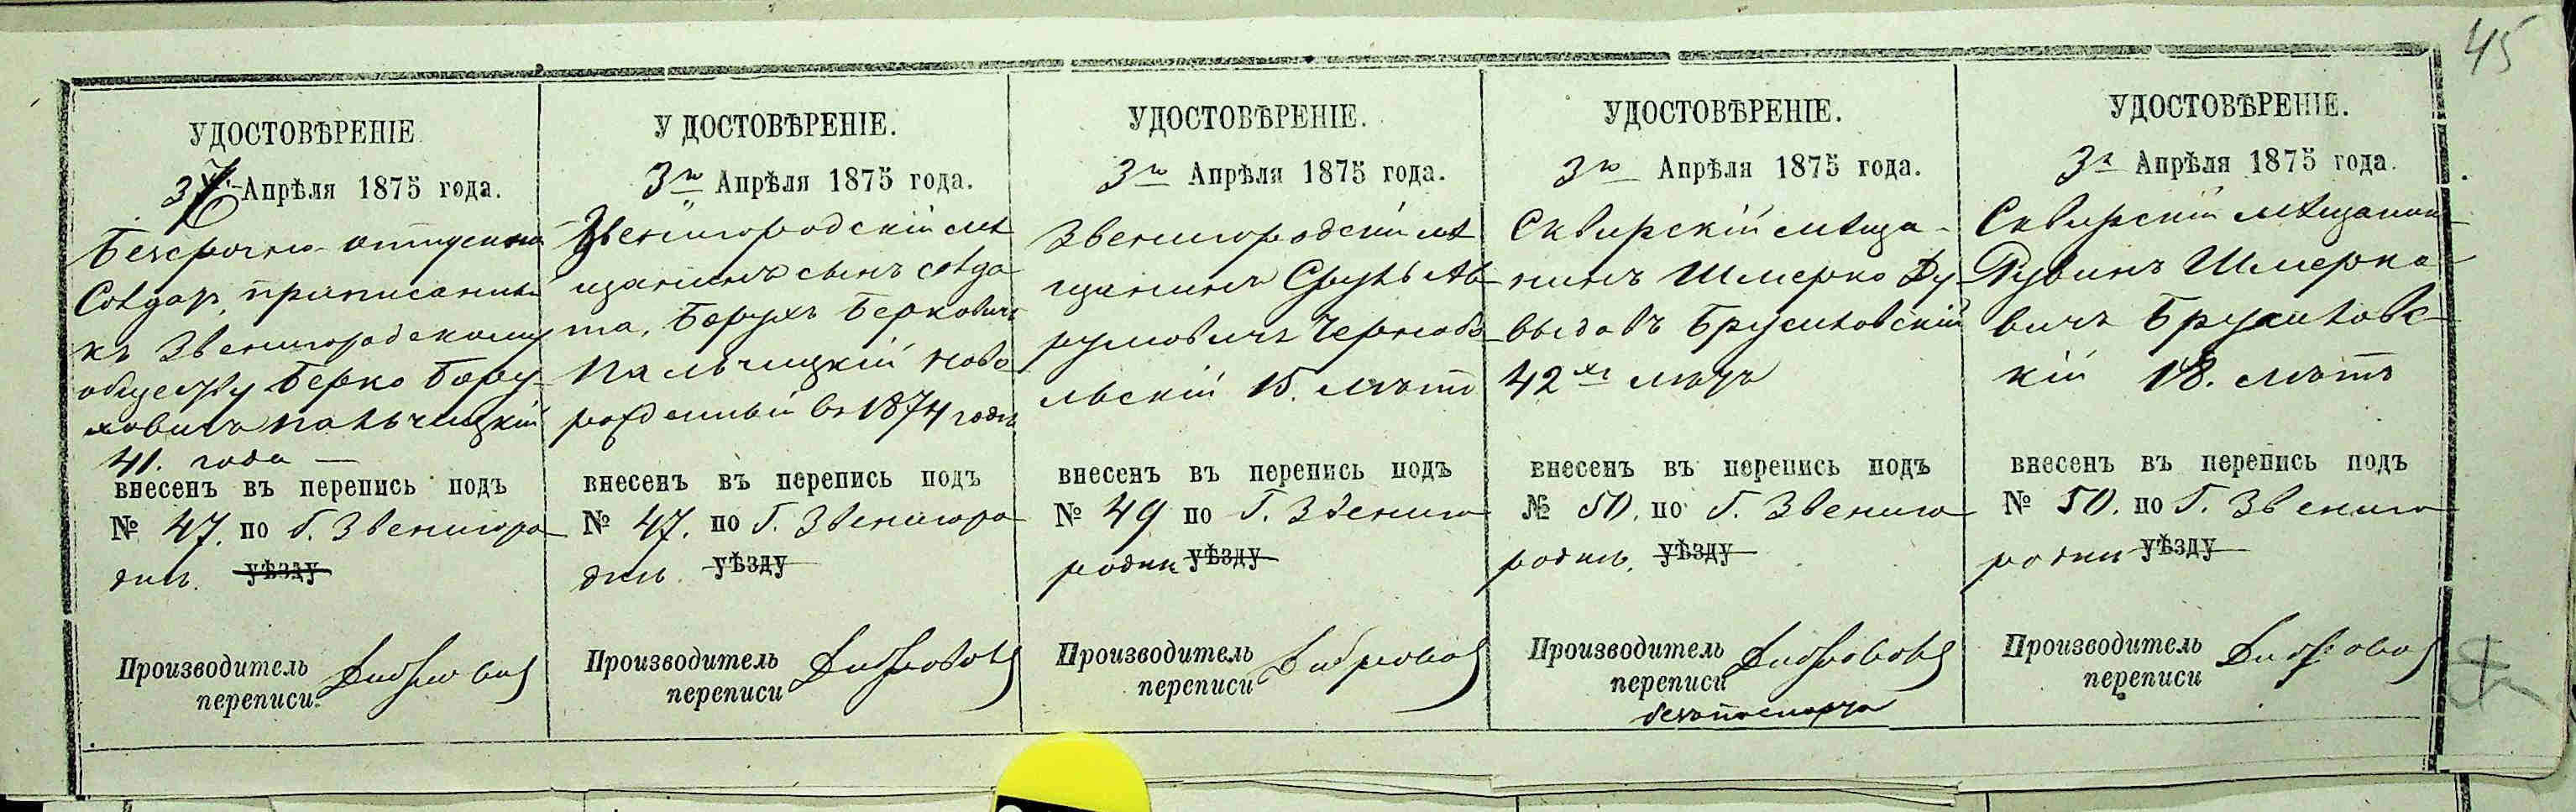 45
УДОСТОВѢРЕНІЕ
Апрѣля 1875 года.
Безсрочно-отпускной
Солдат, приписанный
къ Звенигородскому
обществу Берко Бору-
ховичъ Пальчицкій
41. года —
внесенъ въ перепись подъ
№ 47. по Г. Звенигоро-
дкѣ. уѣзду
Производитель
переписи
УДОСТОВѢРЕНІЕ.
3го Апрѣля 1875 года.
Звенигородскій мѣ
щанинъ сынъ солда
та, Борухъ Берковичъ
Пальчицкій ново
рожденный въ 1874 годѣ
внесенъ въ перепись подъ
№ 47. по Г. Звенигоро
дкѣ. уѣзду
Производитель
переписи
УДОСТОВѢРЕНІЕ.
3го Апрѣля 1875 года.
Звенигородскій мѣ
щанинъ Сруль Ав
румовичъ Чернобы
льскій 15. лѣтъ
внесенъ въ перепись подъ
№ 49 по Г. Звениго
родкѣ уѣзду
Производитель
переписи
УДОСТОВѢРЕНІЕ.
3го Апрѣля 1875 года.
Сквирскій мѣща-
нинъ Шмерко Ду-
выдовъ Брусиловскій
42хъ лѣтъ
внесенъ въ перепись подъ
№ 50. по Г. Звениго
родкѣ. уѣзду
Производитель
переписи
безъ паспорта
УДОСТОВѢРЕНІЕ.
3го Апрѣля 1875 года.
Сквирскій мѣщанин
Рувинъ Шмерко-
вичъ Брусиловс-
кій 18. лѣтъ
внесенъ въ перепись подъ
№ 50. по Г. Звениго
родкѣ уѣзду
Производитель
переписи